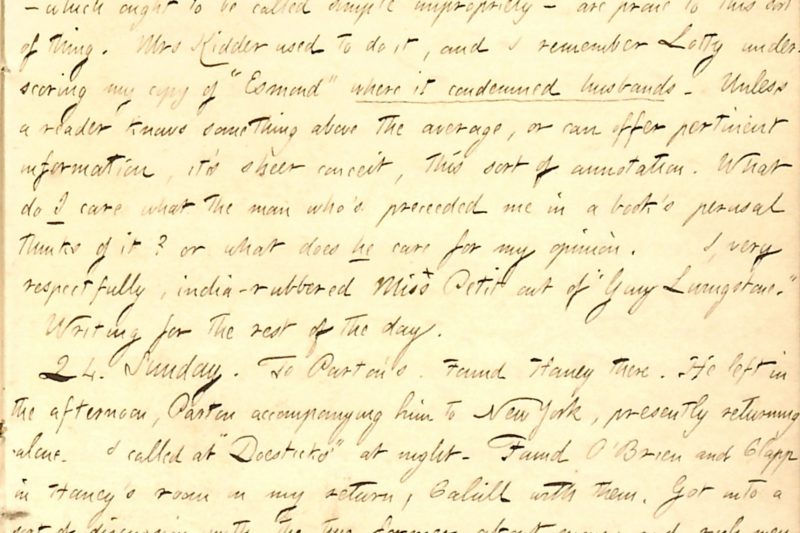 - which ought to be called simple impropriety - are prone to this sort
of thing. Mrs Kidder used to do it, and I remember Lotty under-
scoring my copy of "Esmond" where it condemned husbands. Unless
a reader knows something above the average, or can offer pertinent
information, it's sheer conceit, this sort of annotation. What
do I care what the man who's preceeded me in a book's perusal
thinks of it? or what does he care for my opinion. I, very
respectfully, india-rubbered Miss Petit out of "Guy Livingstone."
Writing for the rest of the day.
24. Sunday. To Parton's. Found Haney there. He left in
the afternoon, Parton accompanying him to New York, presently returning
alone. I called at "Doesticks" at night. Found O'Brien and Clapp
in Haney's room on my return, Cahill with them. Got into a
sort of discussion with the two former about